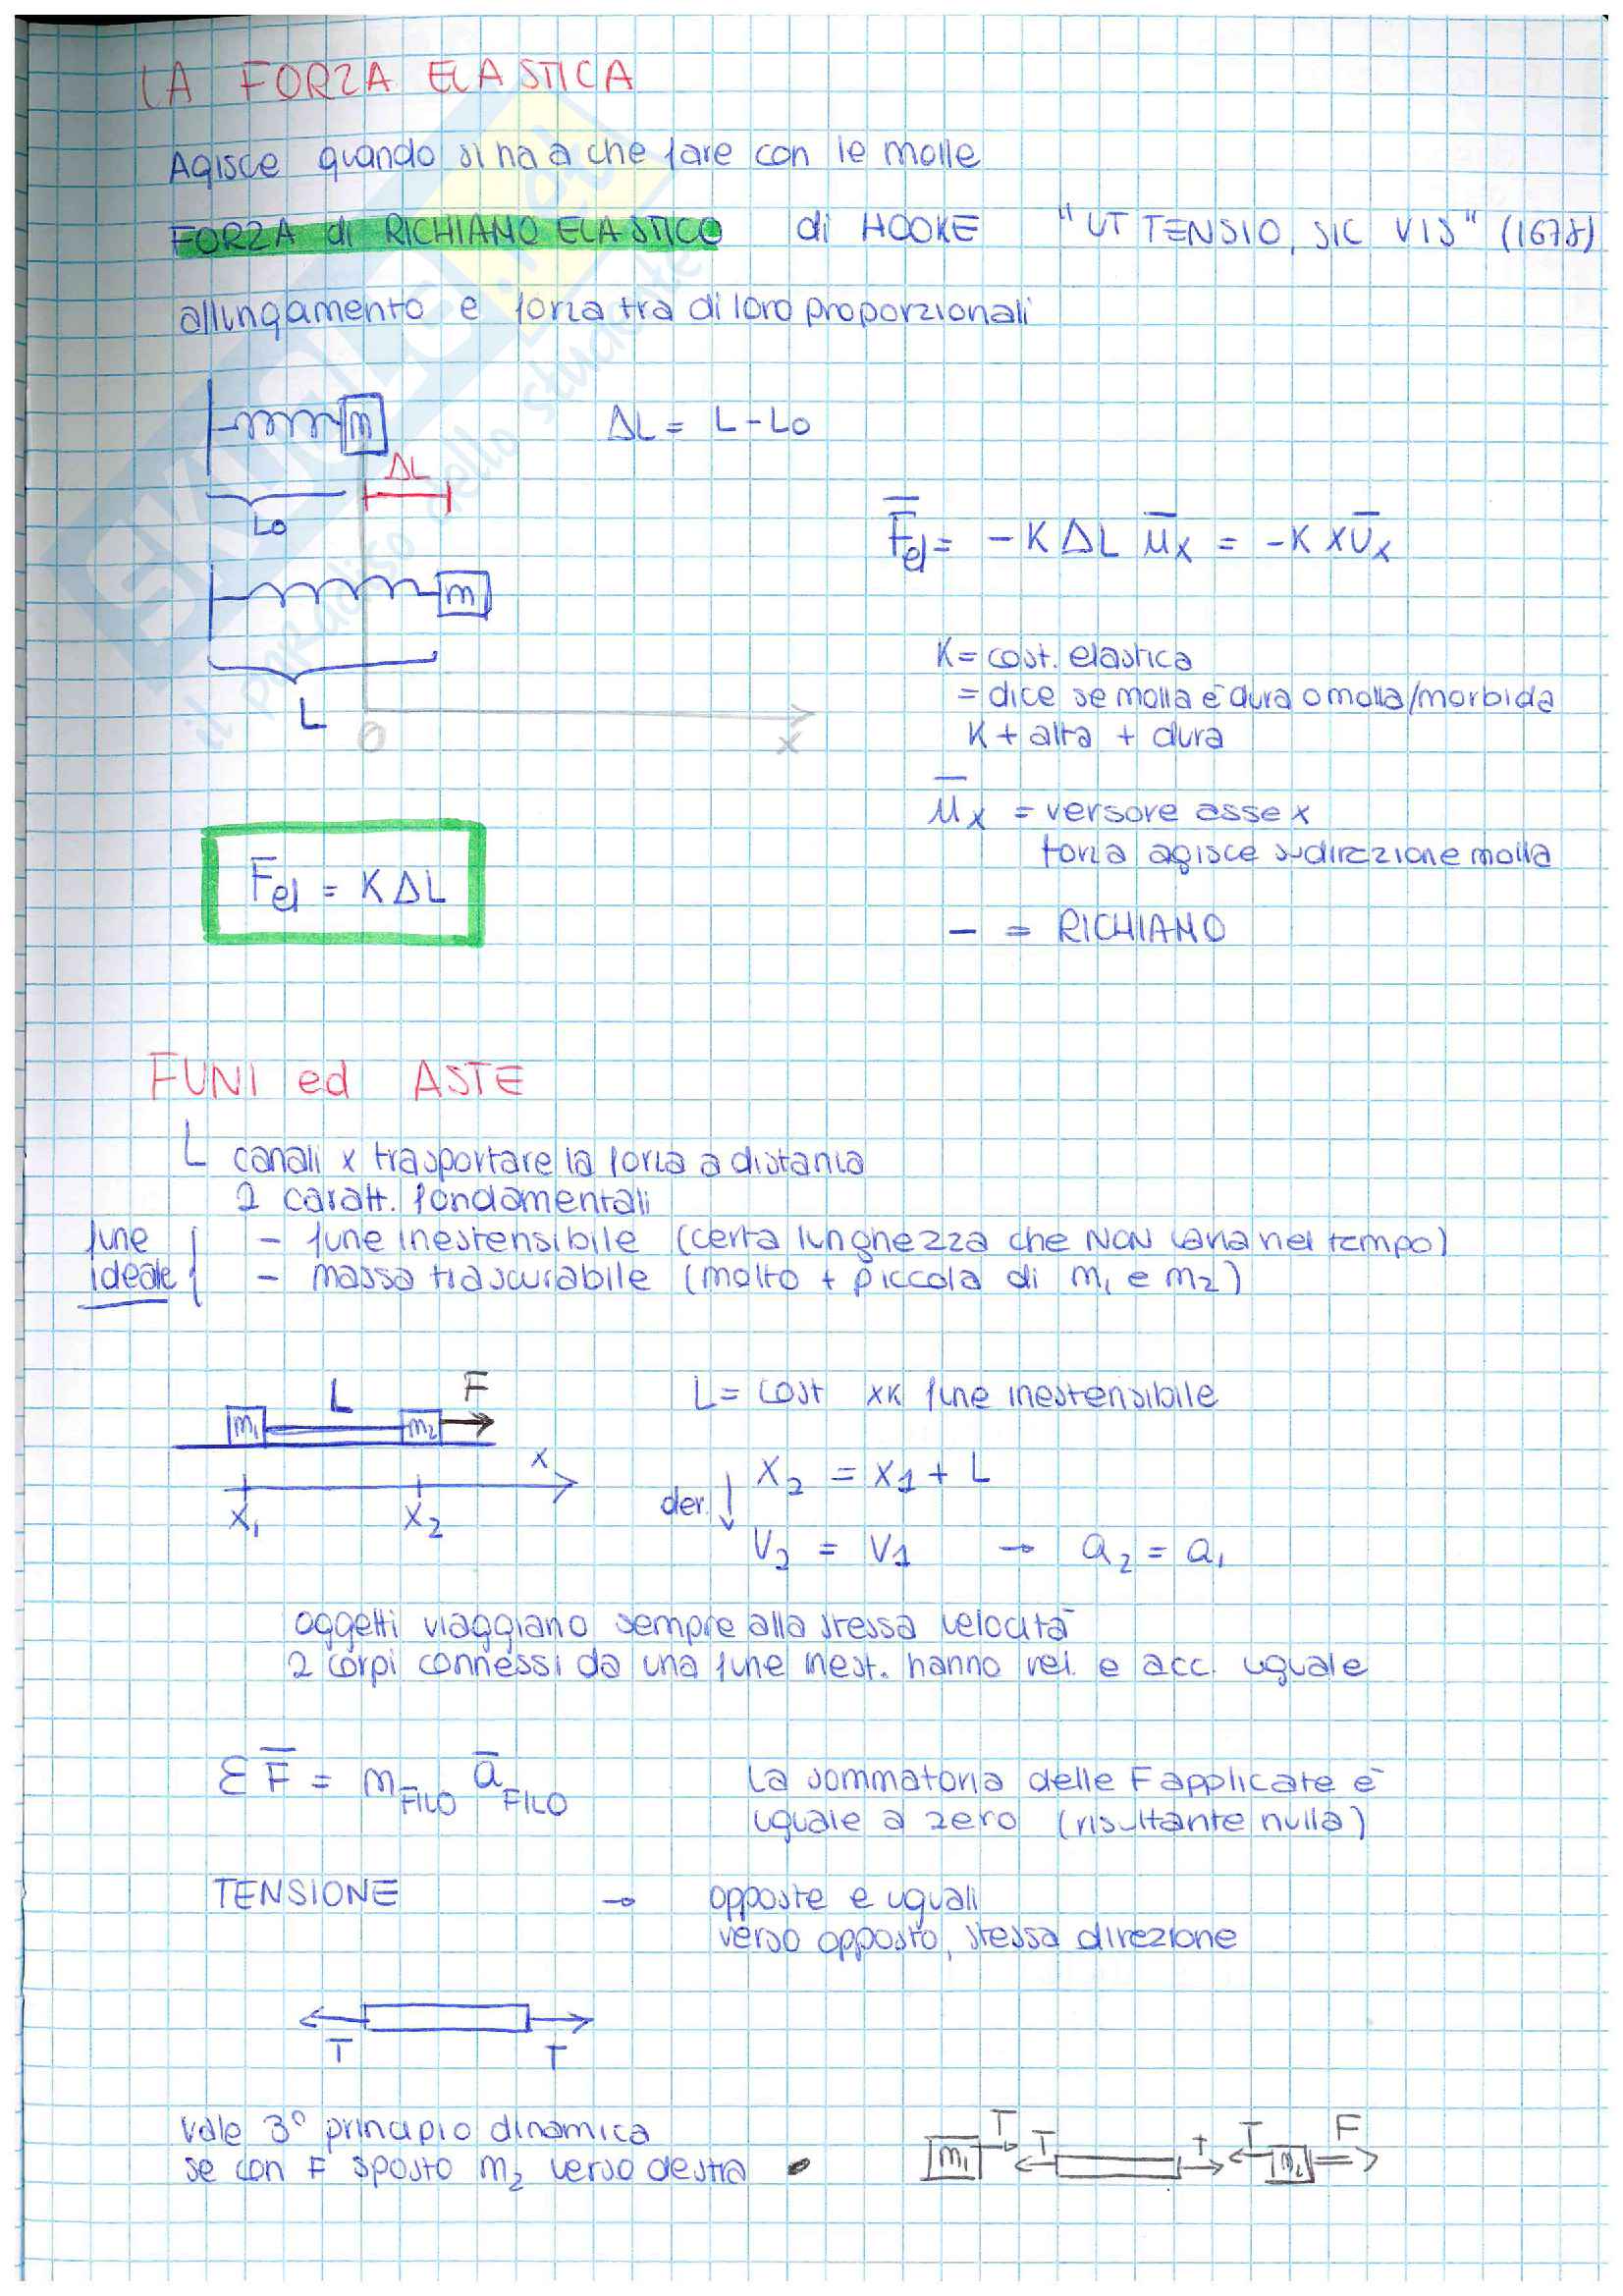 LA FORZA ELASTICA
Agisce quando si ha a che fare con le molle
FORZA di RICHIAMO ELASTICO di HOOKE "UT TENSIO, SIC VIS" (1678)
allungamento e forza tra di loro proporzionali
m
ΔL = L - L0
ΔL
L0
F̅el = - K ΔL u̅x = - K x u̅x
m
K = cost. elastica
= dice se molla è dura o molla/morbida
K + alta + dura
L
O x
u̅x = versore asse x
forza agisce su direzione molla
Fel = K ΔL
- = RICHIAMO
FUNI ed ASTE
L canali x trasportare la forza a distanza
2 caratt. fondamentali
fune ideale
- fune inestensibile (certa lunghezza che NON varia nel tempo)
- massa trascurabile (molto + piccola di m1 e m2)
L F
m1 m2
L = cost xK fune inestensibile
x
x1 x2
x2 = x1 + L
der. ↓
v2 = v1 → a2 = a1
oggetti viaggiano sempre alla stessa velocità
2 corpi connessi da una fune inest. hanno vel. e acc. uguale
Σ F̅ = mFILO a̅FILO
La sommatoria delle F applicate è
uguale a zero (risultante nulla)
TENSIONE → opposte e uguali
verso opposto, stessa direzione
T T
Vale 3° principio dinamica
se con F sposto m2 verso destra
m1 T T T T m2 F
SKUOLA.net
il paradiso dello studente